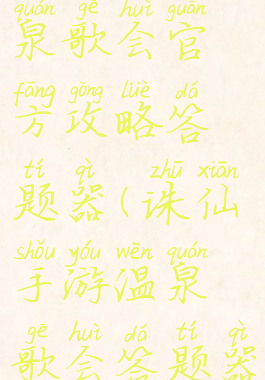 quán gē huì guān
泉歌会官
fāng gōng lüè dá
方攻略答
tí qì zhū xiān
题器(诛仙
shǒu yóu wēn quán
手游温泉
gē huì dá tí qì
歌会答题器